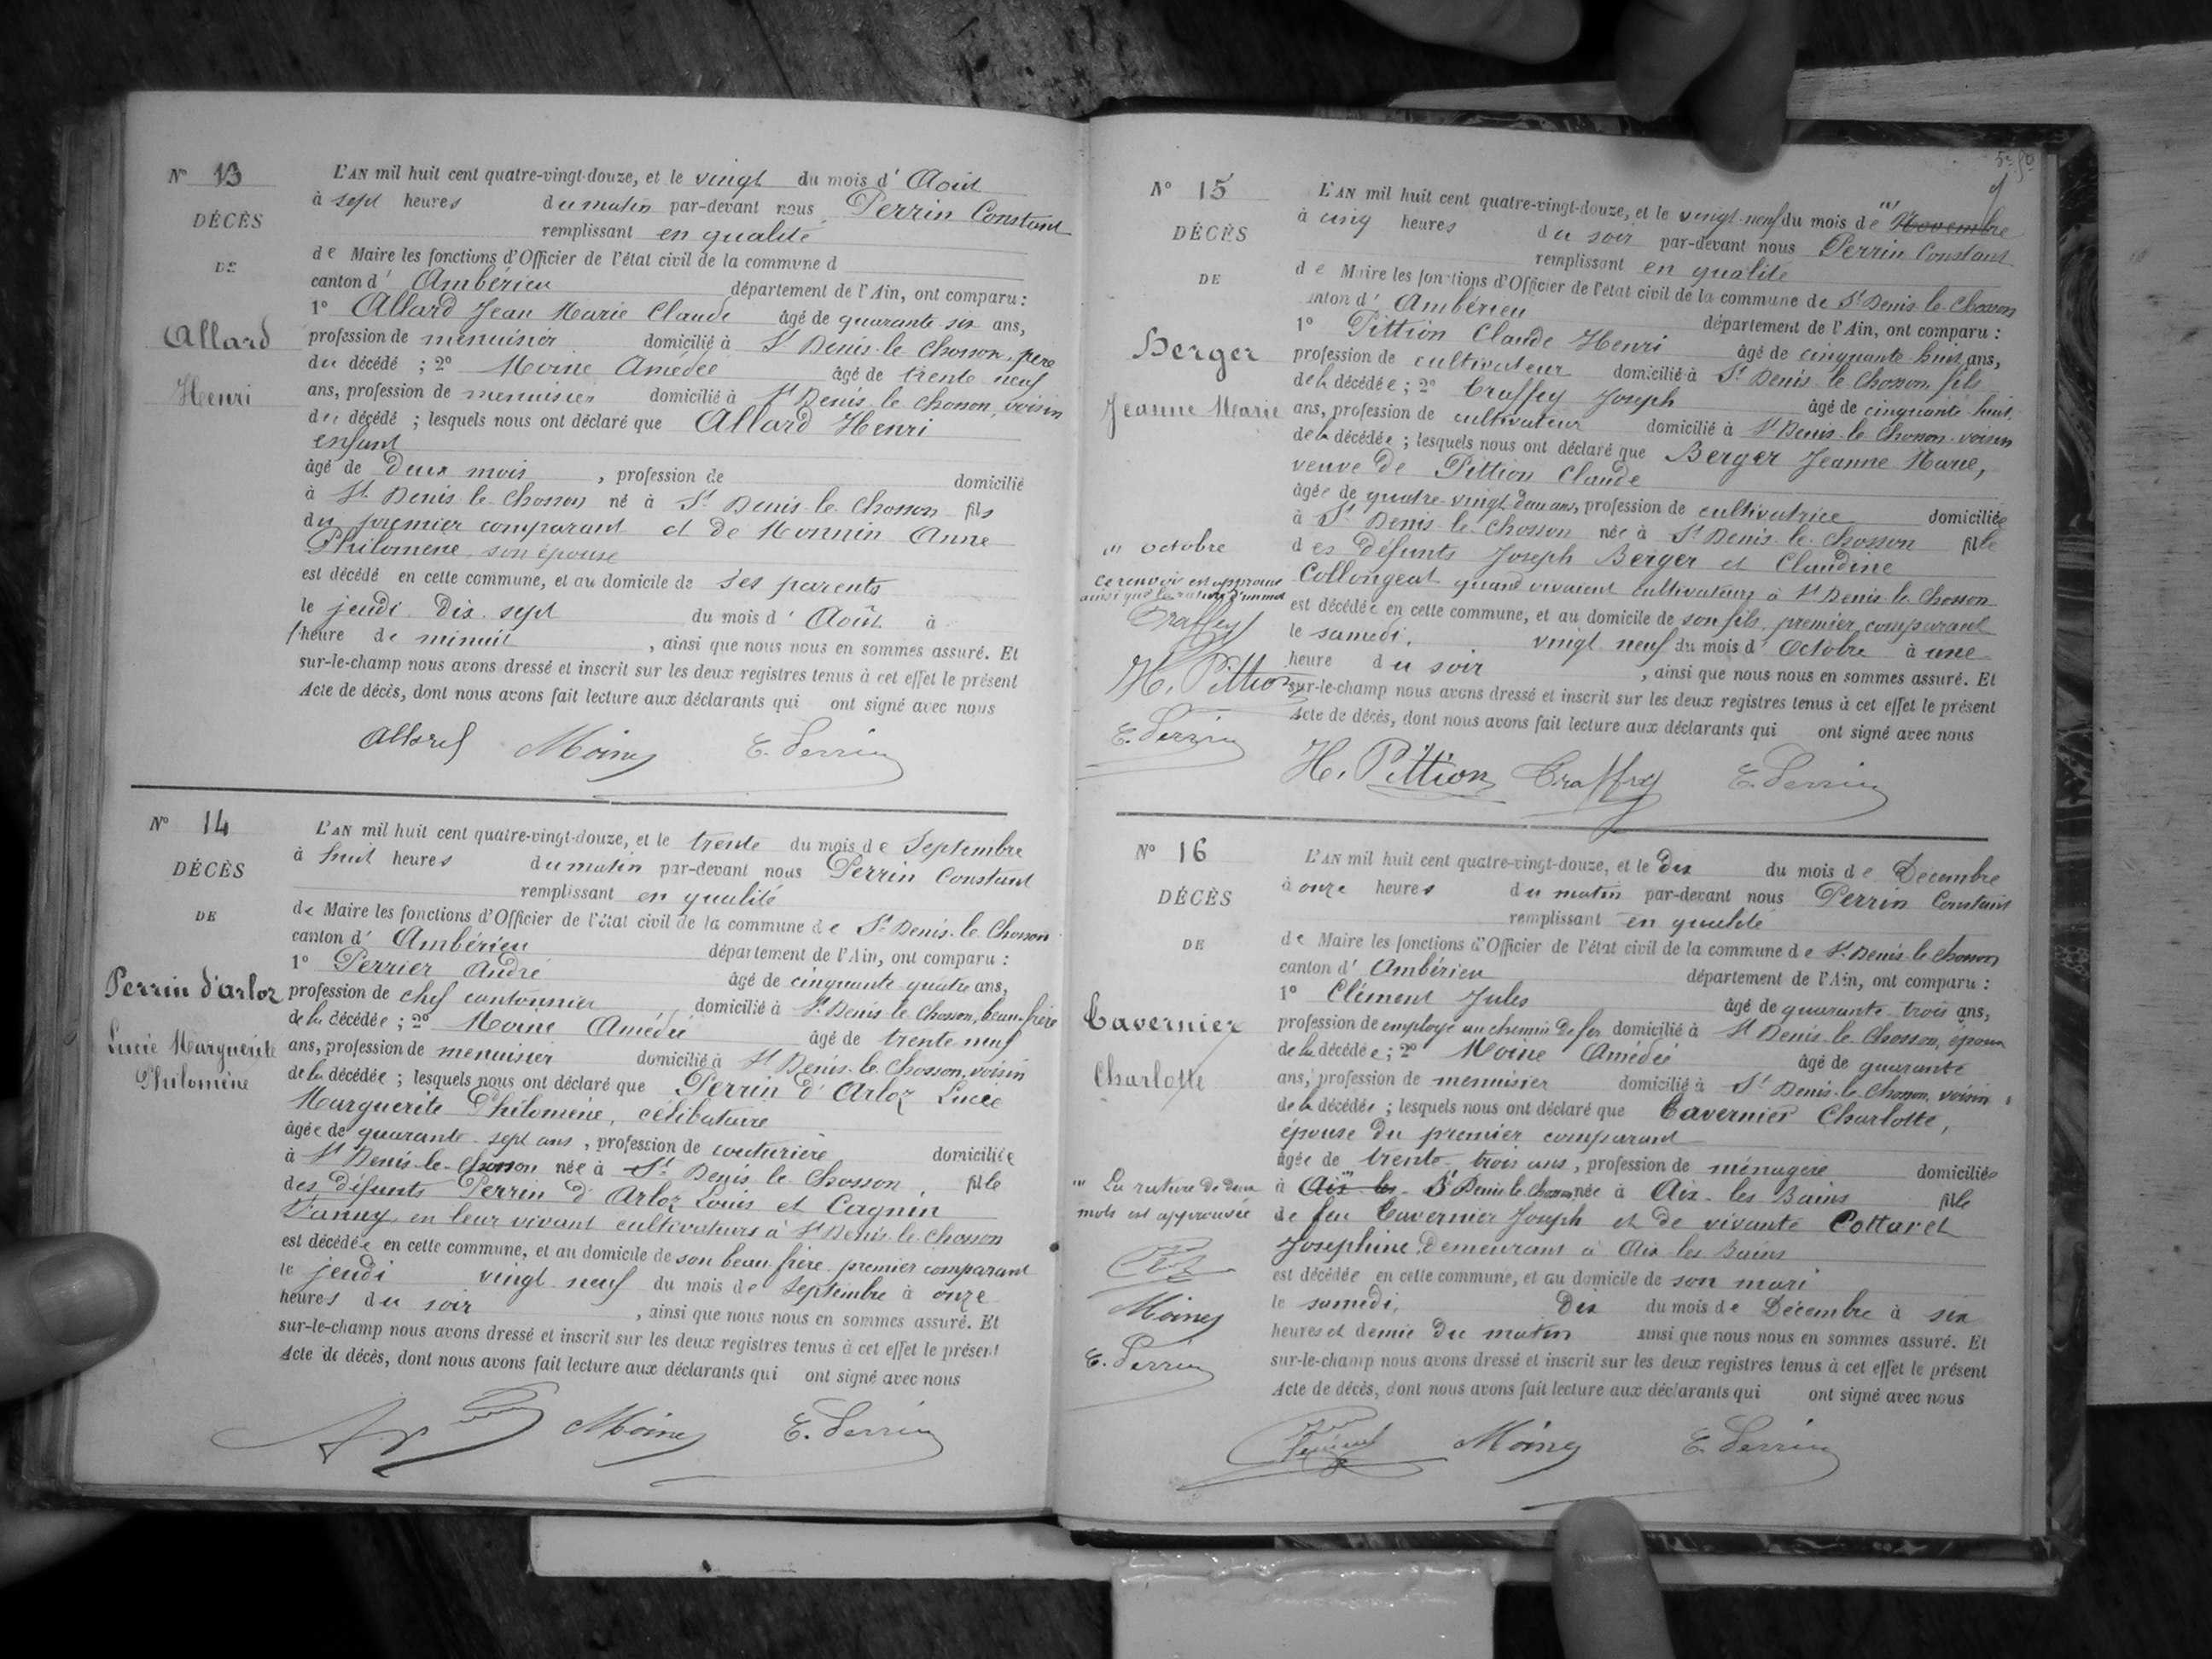 N° 13
DÉCÈS
DE
Allard
Henri
L'AN mil huit cent quatre-vingt-douze, et le vingt du mois d' Août
à sept heures du matin par-devant nous Perrin Constant
remplissant en qualité
de Maire les fonctions d'Officier de l'état civil de la commune d
canton d' Ambérieu département de l'Ain, ont comparu :
1° Allard Jean Marie Claude âgé de quarante six ans,
profession de menuisier domicilié à St Denis-le-Chosson, père
du décédé ; 2° Moine Amédée âgé de trente neuf
ans, profession de menuisier domicilié à St Denis le Chosson, voisin
du décédé ; lesquels nous ont déclaré que Allard Henri
enfant
âgé de deux mois , profession de domicilié
à St Denis-le-Chosson né à St Denis-le-Chosson fils
du premier comparant et de Monnin Anne
Philomène son épouse
est décédé en cette commune, et au domicile de ses parents
le jeudi dix-sept du mois d' Août à
l'heure de minuit , ainsi que nous nous en sommes assuré. Et
sur-le-champ nous avons dressé et inscrit sur les deux registres tenus à cet effet le présent
Acte de décès, dont nous avons fait lecture aux déclarants qui ont signé avec nous
Allard Moine C. Perrin
N° 14
DÉCÈS
DE
Perrin d'arloz
Lucie Marguerite
Philomène
L'AN mil huit cent quatre-vingt-douze, et le trente du mois de Septembre
à huit heures du matin par-devant nous Perrin Constant
remplissant en qualité
de Maire les fonctions d'Officier de l'état civil de la commune de St Denis-le-Chosson
canton d' Ambérieu département de l'Ain, ont comparu :
1° Perrier André âgé de cinquante quatre ans,
profession de chef cantonnier domicilié à St Denis le Chosson, beau-frère
de la décédée ; 2° Moine Amédée âgé de trente neuf
ans, profession de menuisier domicilié à St Denis-le-Chosson, voisin
de la décédée ; lesquels nous ont déclaré que Perrin d'Arloz Lucie
Marguerite Philomène, célibataire
âgée de quarante-sept ans , profession de couturière domiciliée
à St Denis-le-Chosson née à St Denis le Chosson , fille
des défunts Perrin d'Arloz Louis et Cagnin
Fanny en leur vivant cultivateurs à St Denis-le-Chosson
est décédée en cette commune, et au domicile de son beau-frère premier comparant
le jeudi vingt neuf du mois de Septembre à onze
heures du soir , ainsi que nous nous en sommes assuré. Et
sur-le-champ nous avons dressé et inscrit sur les deux registres tenus à cet effet le présent
Acte de décès, dont nous avons fait lecture aux déclarants qui ont signé avec nous
Moine C. Perrin
N° 15
DÉCÈS
DE
Berger
Jeanne Marie
L'AN mil huit cent quatre-vingt-douze, et le vingt-neuf du mois de Novembre
à cinq heures du soir par-devant nous Perrin Constant
remplissant en qualité
de Maire les fonctions d'Officier de l'état civil de la commune de St Denis-le-Chosson
canton d' Ambérieu département de l'Ain, ont comparu :
1° Pittion Claude Henri âgé de cinquante huit ans,
profession de cultivateur domicilié à St Denis le Chosson fils
de la décédée ; 2° Traffey Joseph âgé de cinquante huit
ans, profession de cultivateur domicilié à St Denis-le-Chosson voisin
de la décédée ; lesquels nous ont déclaré que Berger Jeanne Marie,
veuve de Pittion Claude
âgée de quatre-vingt deux ans, profession de cultivatrice domiciliée
à St Denis-le-Chosson née à St Denis-le-Chosson fille
des défunts Joseph Berger et Claudine
Collongeat quand vivaient cultivateurs à St Denis-le-Chosson
est décédée en cette commune, et au domicile de son fils, premier comparant
le samedi, vingt neuf du mois d' Octobre à une
heure du soir , ainsi que nous nous en sommes assuré. Et
sur-le-champ nous avons dressé et inscrit sur les deux registres tenus à cet effet le présent
Acte de décès, dont nous avons fait lecture aux déclarants qui ont signé avec nous
octobre
ce renvoi est approuvé
ainsi que la rature d'un mot
Traffey
H. Pittion
C. Perrin
H. Pittion Traffey C. Perrin
N° 16
DÉCÈS
DE
Tavernier
Charlotte
L'AN mil huit cent quatre-vingt-douze, et le dix du mois de Décembre
à onze heures du matin par-devant nous Perrin Constant
remplissant en qualité
de Maire les fonctions d'Officier de l'état civil de la commune de St Denis-le-Chosson
canton d' Ambérieu département de l'Ain, ont comparu :
1° Clément Jules âgé de quarante-trois ans,
profession de employé au chemin de fer domicilié à St Denis-le-Chosson, époux
de la décédée ; 2° Moine Amédée âgé de quarante
ans, profession de menuisier domicilié à St Denis-le-Chosson, voisin
de la décédée ; lesquels nous ont déclaré que Tavernier Charlotte,
épouse du premier comparant
âgée de trente-trois ans, profession de ménagère domiciliée
à Aix les St Denis le Chosson née à Aix-les-Bains fille
de feu Tavernier Joseph et de vivante Cottaret
Josephine demeurant à Aix les Bains
est décédée en cette commune, et au domicile de son mari
le samedi, dix du mois de Décembre à six
heures et demie du matin ainsi que nous nous en sommes assuré. Et
sur-le-champ nous avons dressé et inscrit sur les deux registres tenus à cet effet le présent
Acte de décès, dont nous avons fait lecture aux déclarants qui ont signé avec nous
La rature de deux
mots est approuvée
Moine
C. Perrin
Moine C. Perrin